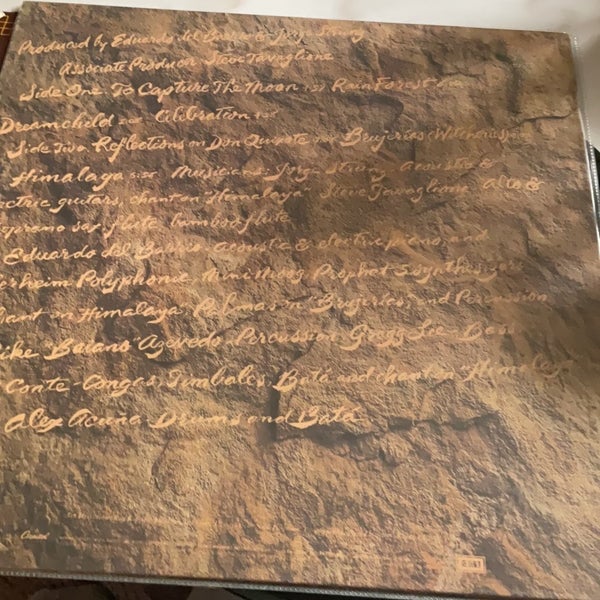 Produced by Eduardo del Barrio & Jorge Strunz
Associate Producer Steve Tavaglione
Side One To Capture The Moon Rainforest
Dreamchild Celebration
Side Two Reflections on Don Quixote Brujerias (Witcheries)
Himalaya Musicians Jorge Strunz Acoustic &
ectric guitars, chant on "Himalaya" Steve Tavaglione Alto &
soprano sax, flute, bamboo flute
Eduardo del Barrio Acoustic & electric piano, and
erheim Polyphonic Mini Moog Prophet 5 synthesizers
chant on Himalaya Palmas on "Brujerias" and Percussion
ike "Baiano" Azevedo Percussion Gregg Lee Bass
Conte Congas, Timbales, Batá and chant on "Himalaya"
Alex Acuña Drums and Batá